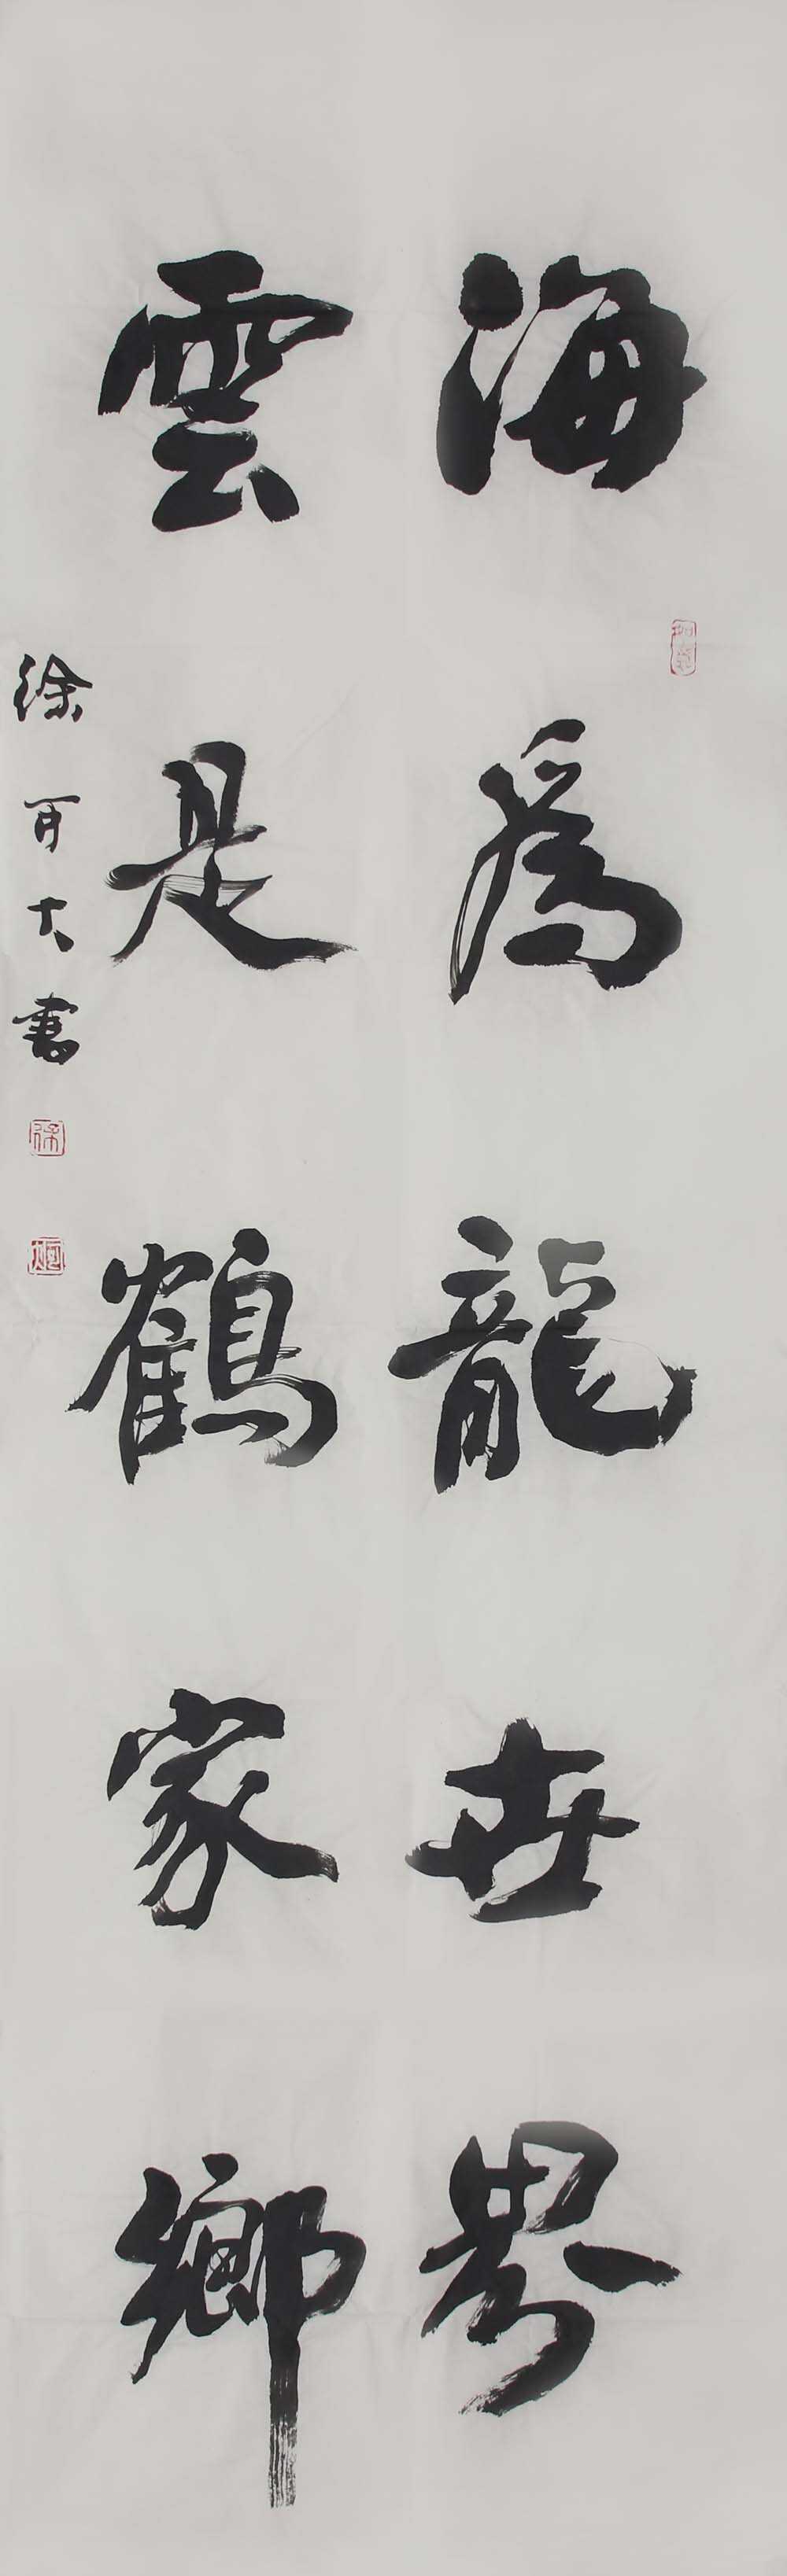 海為龍世界
雲是鶴家鄉
徐百大書
徐